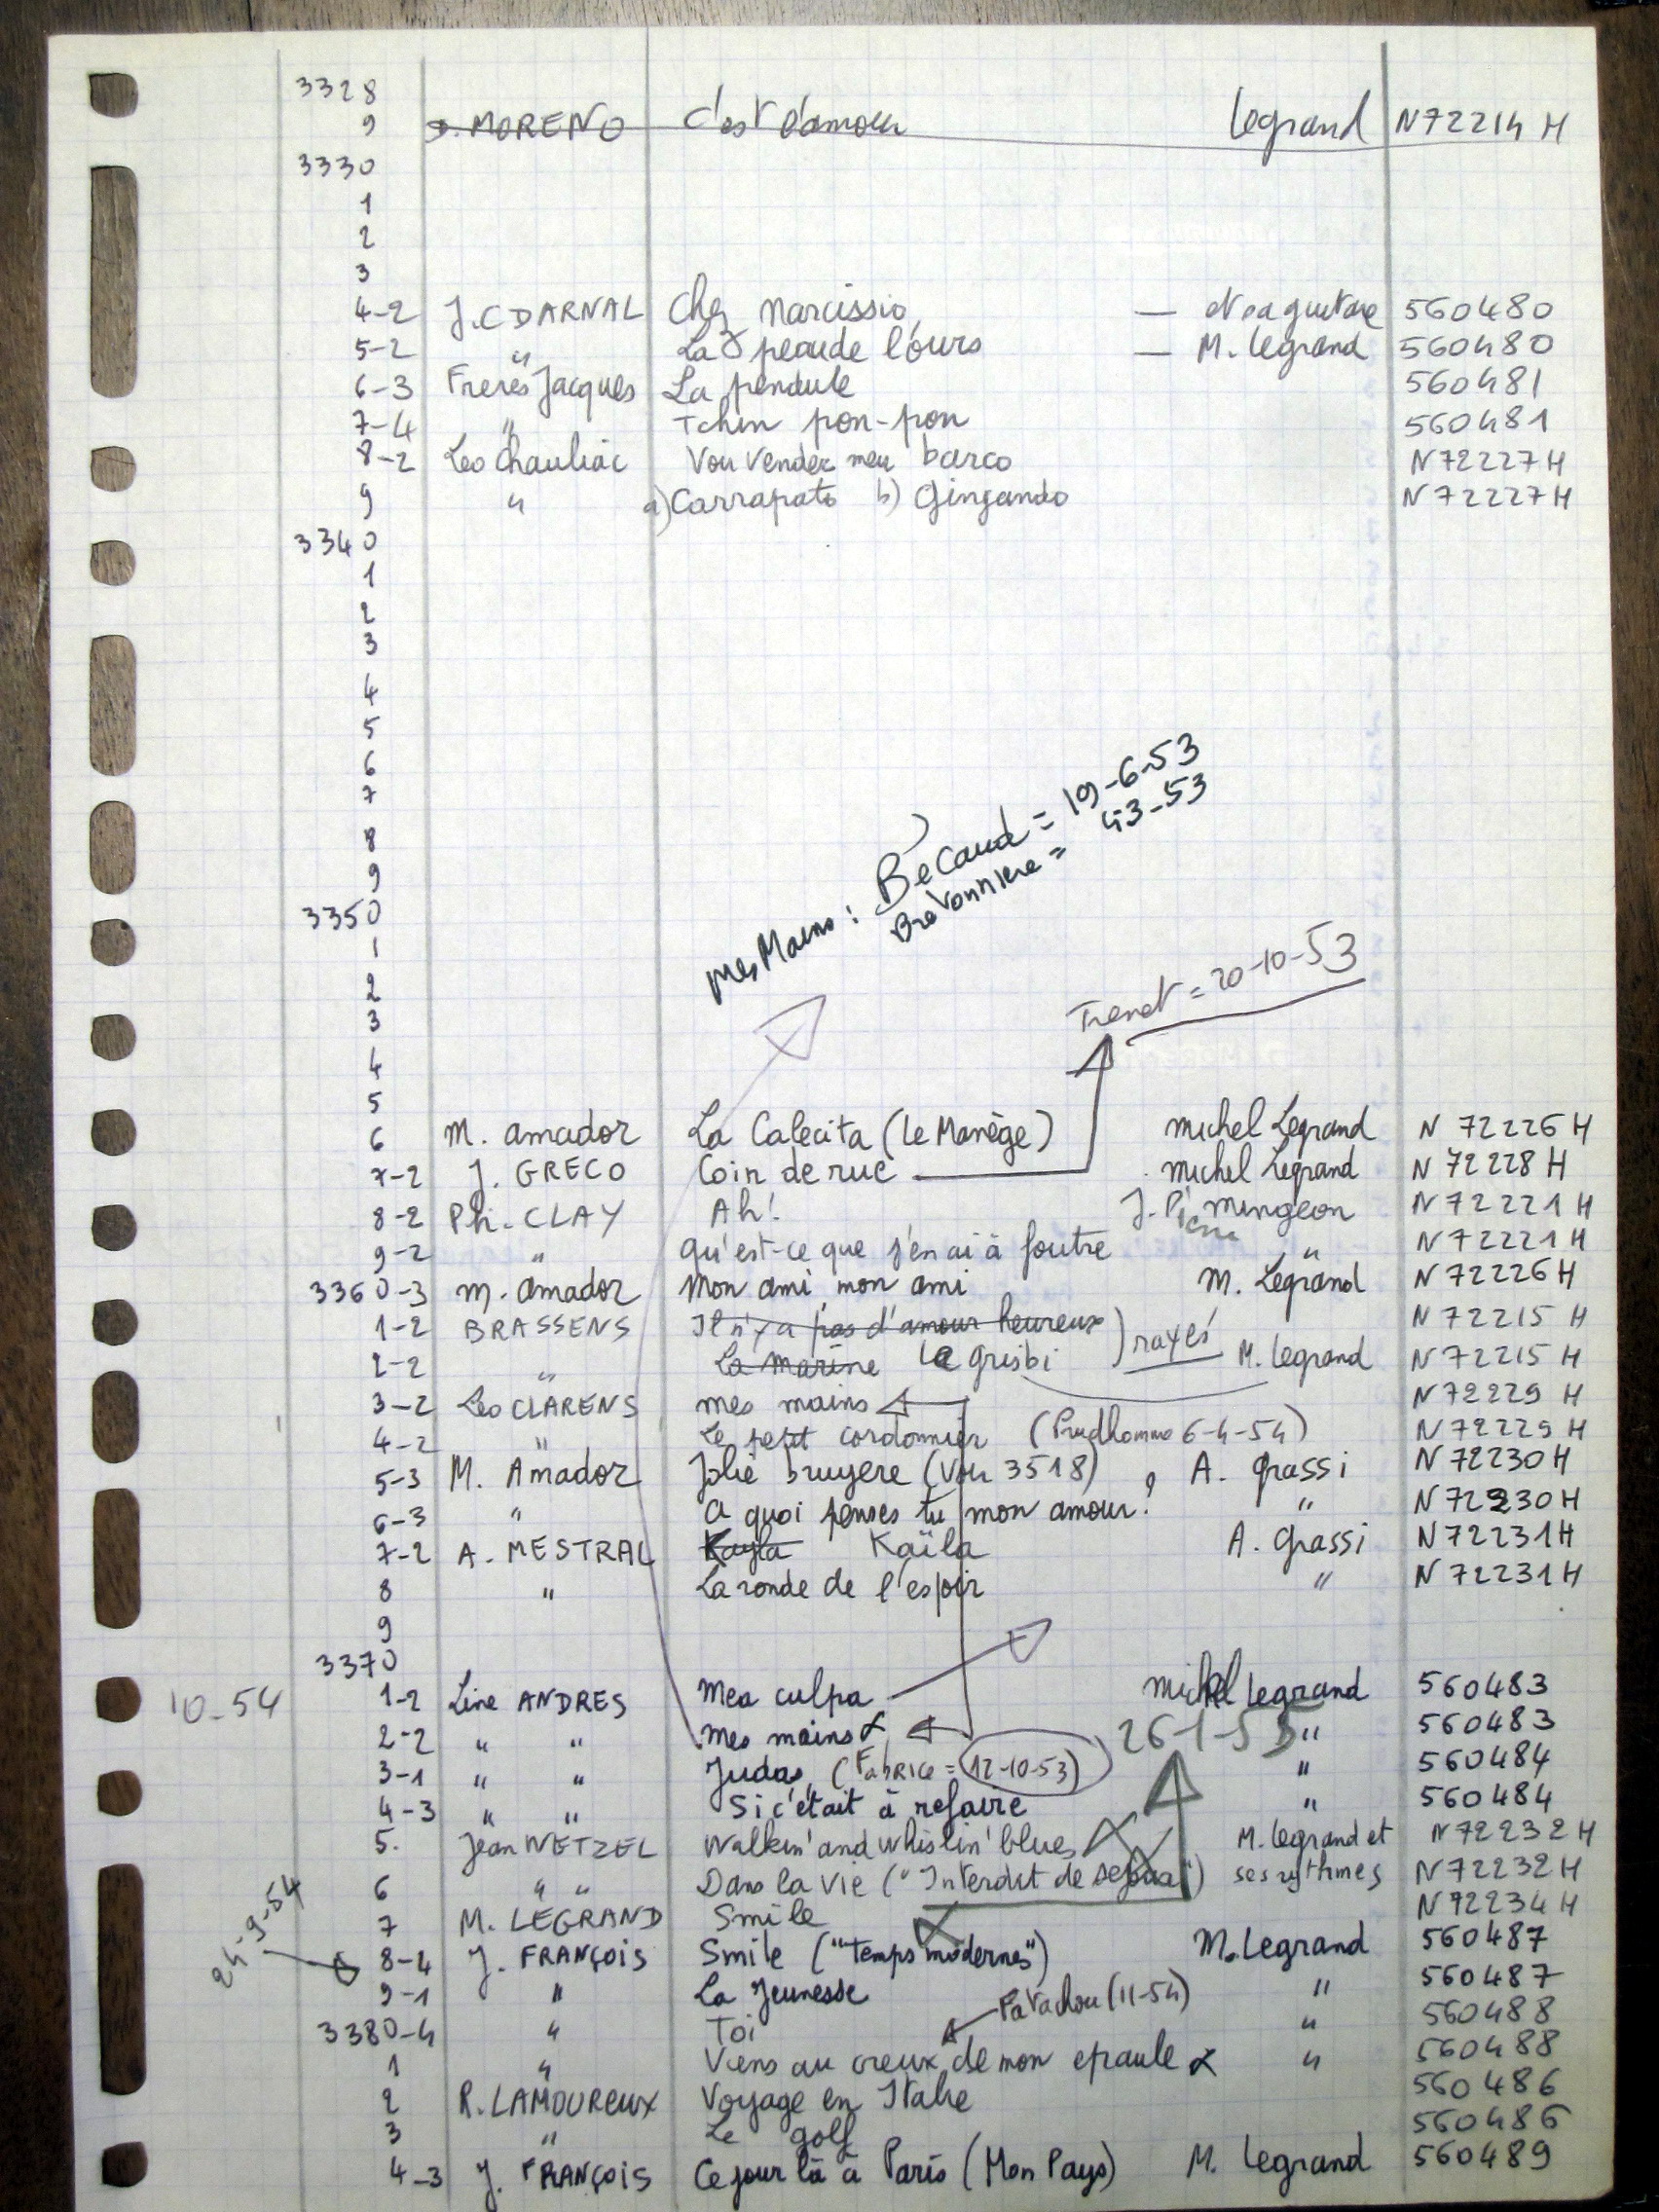 3328
9 D. MORENO C'est l'amour Legrand N72214 H
3330
1
2
3
4-2 J.C DARNAL Chez Narcissio — et sa guitare 560480
5-2 " La peau de l'ours — M. Legrand 560480
6-3 Freres Jacques La pendule 560481
7-4 " Tchin pon-pon 560481
8-2 Leo Chauliac Vou vender meu barco N72227H
9 " a) Carrapato b) Gingando N72227H
3340
1
2
3
4
5
6
7
8
9
mes Mains : Becaud = 19-6-53
Bretonniere = 4-3-53
3350
1
2
Trenet = 20-10-53
3
4
5
6 M. amador La Calecita (Le Manège) michel Legrand N 72226 H
7-2 J. GRECO Coin de rue michel Legrand N 72228 H
8-2 Ph. CLAY Ah! J. P. Mengeon N 72221 H
9-2 " qu'est-ce que j'en ai à foutre " N 72221 H
3360-3 M. amador Mon ami, mon ami M. Legrand N 72226 H
1-2 BRASSENS Il n'y a pas d'amour heureux ) rayés N 72215 H
2-2 " La marine Le grisbi M. Legrand N 72215 H
3-2 Leo CLARENS mes mains N 72229 H
4-2 " Le petit cordonnier (Prudhomme 6-4-54) N 72229 H
5-3 M. Amador Jolie bruyere (voir 3518) A. grassi N 72230 H
6-3 " a quoi penses tu mon amour? " N 72230 H
7-2 A. MESTRAL Kayla Kaïla A. grassi N 72231 H
8 " La ronde de l'espoir " N 72231 H
9
3370
10-54 1-2 Line ANDRES Mea culpa michel Legrand 560483
2-2 " " Mes mains 26-1-55 " 560483
3-1 " " Judas (Fabrice = 12-10-53) " 560484
4-3 " " Si c'était à refaire " 560484
5. Jean WETZEL Walkin' and whislin' blues M. Legrand et N 72232 H
6 " " Dans la vie ("Interdit de sejour") ses rythmes N 72232 H
7 M. LEGRAND Smile N 72234 H
24-9-54 8-4 J. FRANÇOIS Smile ("Temps modernes") M. Legrand 560487
9-1 " La Jeunesse " 560487
Patachou (11-54)
3380-4 " Toi " 560488
1 " Viens au creux de mon epaule " 560488
2 R. LAMOUREUX Voyage en Italie 560486
3 " Le golf 560486
4-3 J. FRANÇOIS Ce jour là à Paris (Mon Pays) M. Legrand 560489